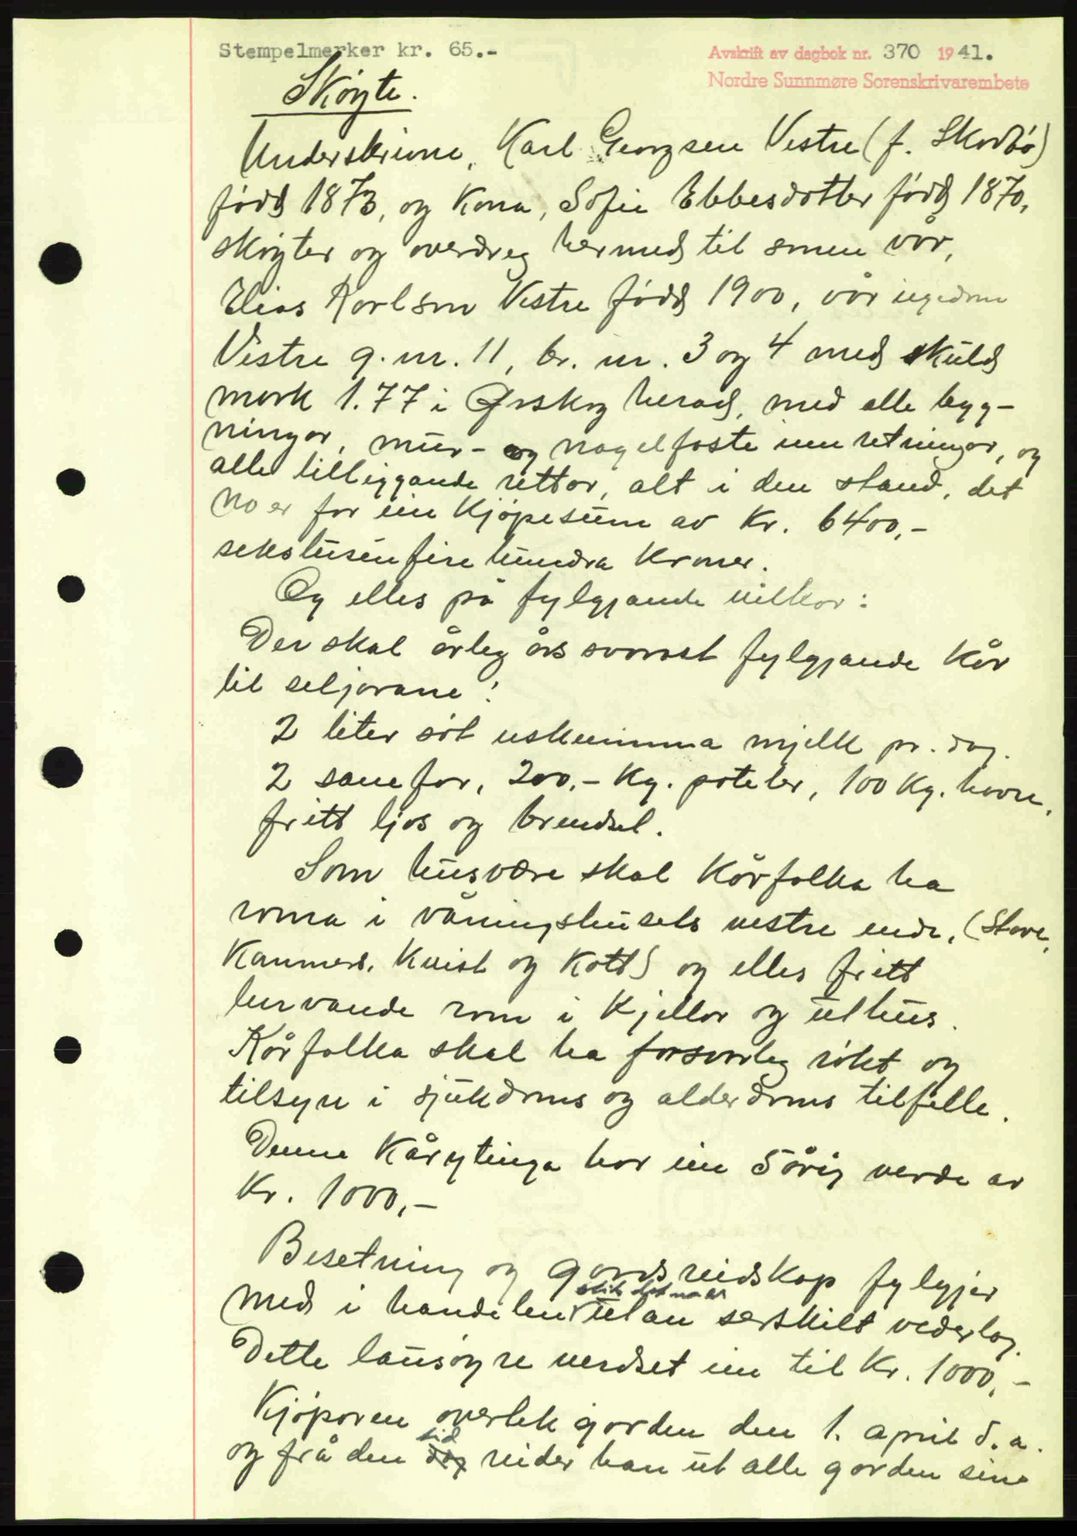 Stempelmerker kr. 65.-
Avskrift av dagbok nr. 370 1941.
Nordre Sunnmøre Sorenskrivarembete
Skøyte.
Underskrivne, Karl Georgsen Vestre (f. Skodbø)
født 1873, og Kona, Sofie Ebbesdotter født 1870,
skøyter og overdreg hermed til sonen vår,
Elias Karlson Vestre født 1900, vår eigedom
Vestre g. nr. 11, br. nr. 3 og 4 med skuld
mark 1.77 i Ørskog herad, med alle byg-
ningar, mur- og nagelfaste innretningar, og
alle tilliggande rettar, alt i den stand, det
no er for ein Kjøpesum av Kr. 6400,-
sekstusenfirehundra Kroner.
Og elles på fylgjande vilkor:
Der skal årleg års svarast fylgjande Kår
til seljarane:
2 liter søt uskumma mjelk pr. dag.
2 sauefor, 200,- Kg. poteter, 100 Kg. havre,
fritt ljos og brendsel.
Som husvære skal Kårfolka ha
roma i våningshusets vestre ende, (Stove,
Kammers, Kvist og Kott) og elles fritt
turvande rom i Kjellar og uthus.
Kårfolka skal ha forsvarleg røkt og
tilsyn i sjukdoms og alderdoms tilfelle.
Denne Kårytinga har ein 5årig verde av
Kr. 1000,-
Besetning og gardsreidskap fylgjer
slik det no er
med i handelen utan serskilt vederlag.
Dette lausøyre verdset ein til Kr. 1000,-
Kjøparen overtek garden den 1. april d. a.
tid
og frå den dag reider han ut alle garden sine